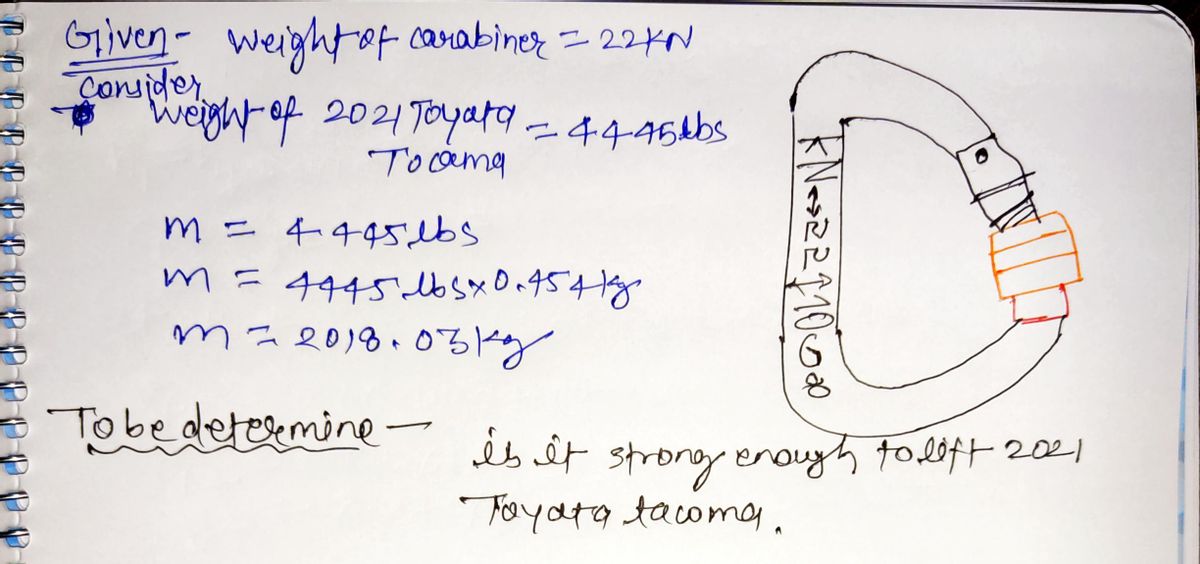 Given - weight of carabiner = 22KN
Consider
Weight of 2021 Toyata = 4445lbs
Tocama
m = 4445lbs
m = 4445 lbs x 0.454kg
m = 2018.03kg
KN ↔ 22 ↕ 10 G 8
To be determine -
is it strong enough to lift 2021
Toyata tacoma.